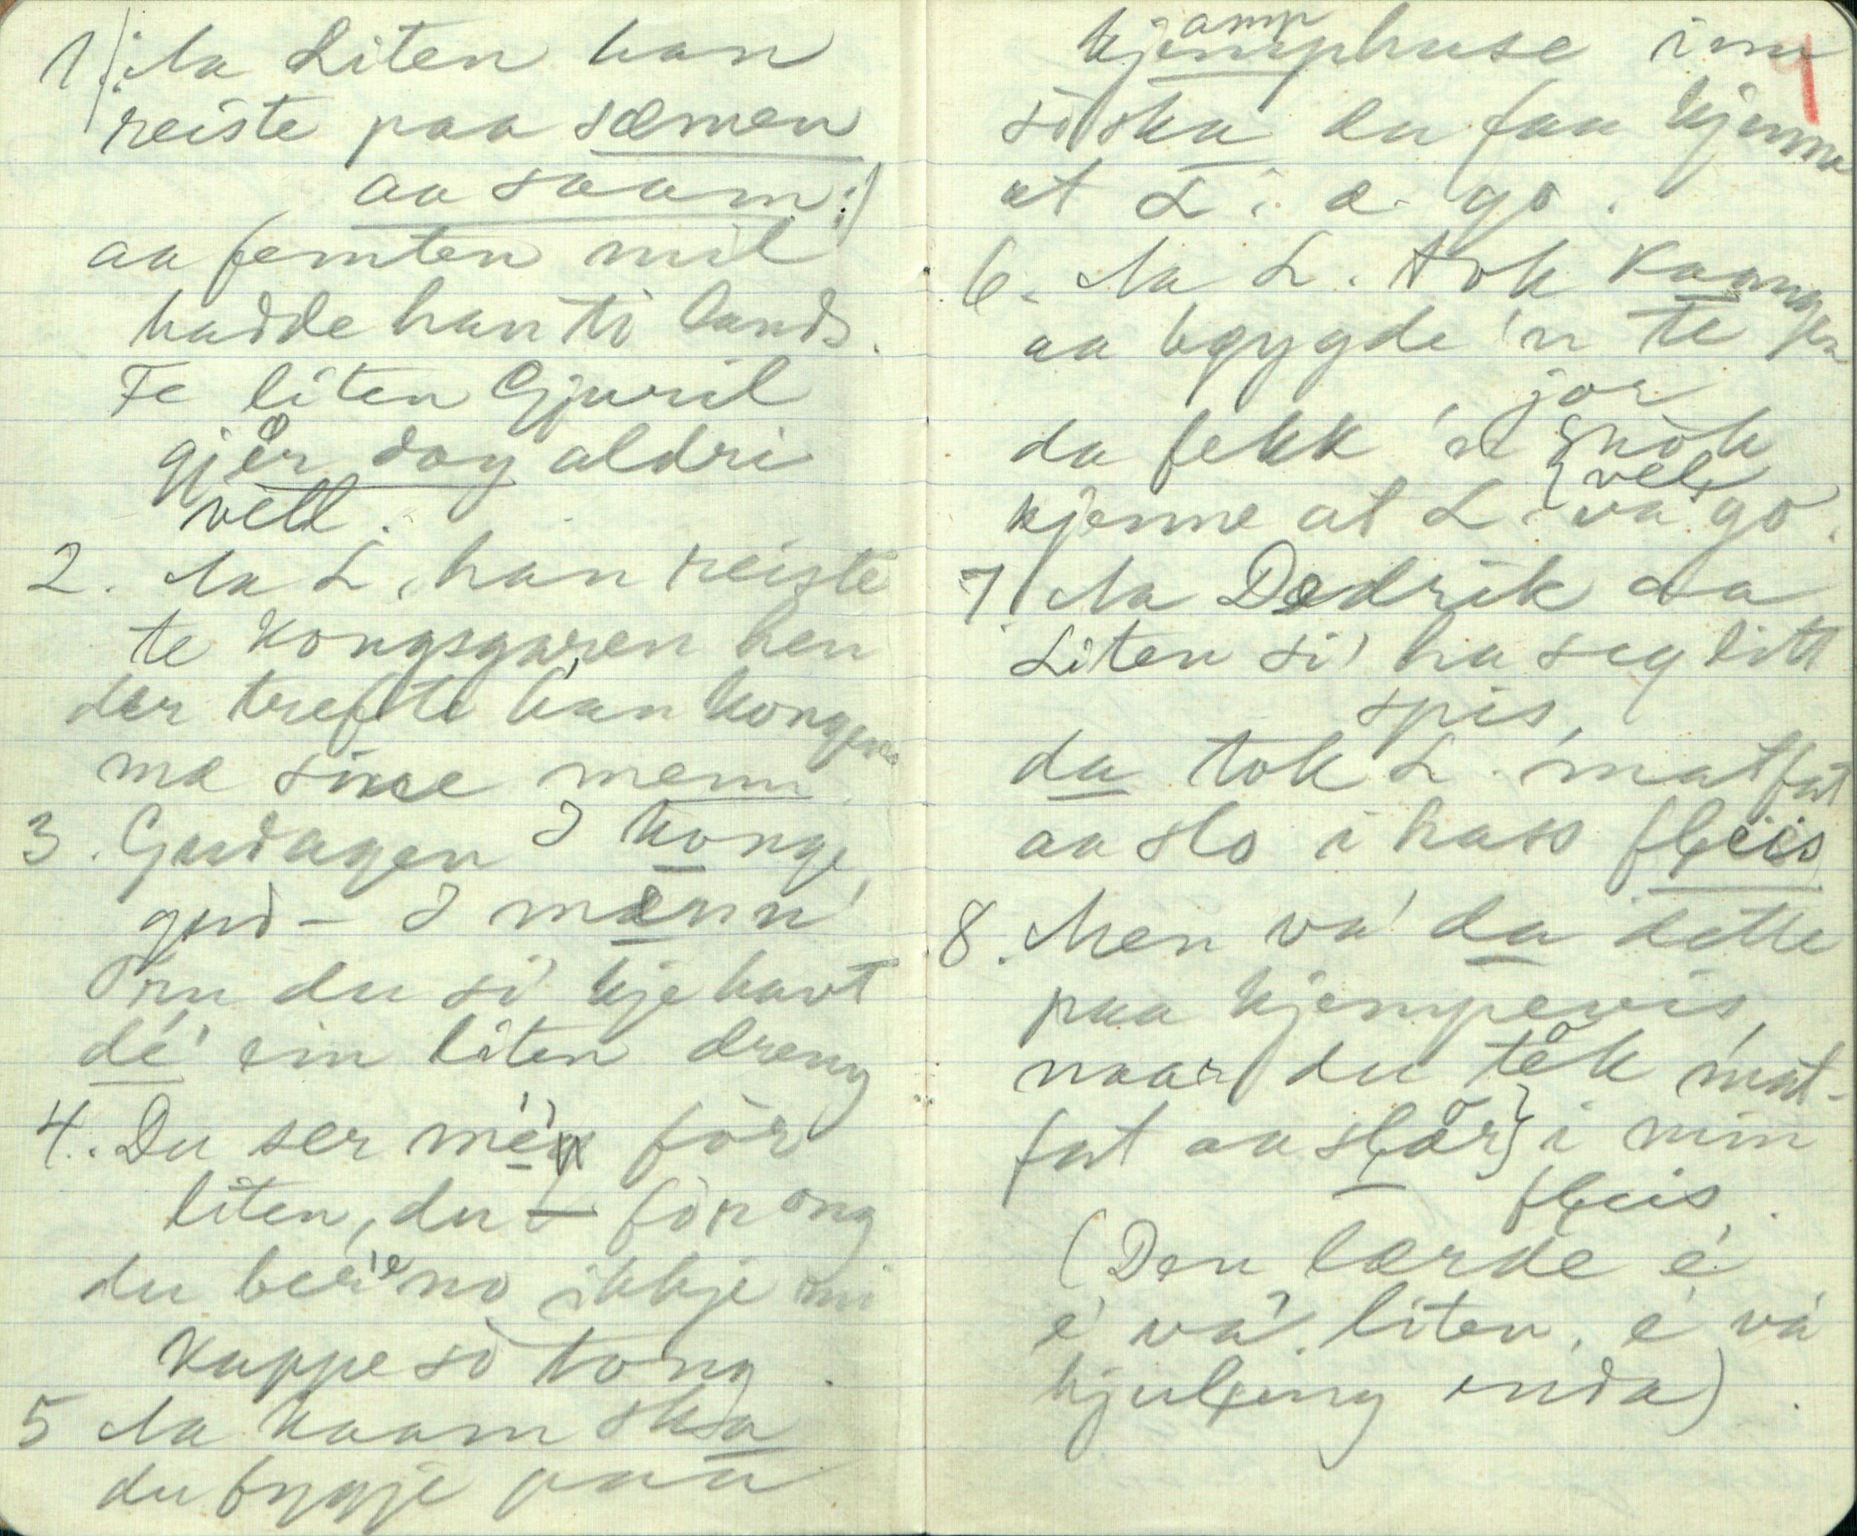 1/: Aa Liten han
reiste paa sæmen
aa saam :/
aa femten mil
hadde han ti lands.
Te liten Gjuril
gjer dog aldri
vell.
2. Aa L. han reiste
te kongsgaren hen
der trefte han kongen
mæ sine menn
3. Gudagen I konge,
gud – I mænn
Om du si' kje havt
dé ein liten dreng
4. Du ser mé før
liten, du før ong
du bere no ikkje mi
kappe sò tong.
5 Aa kaam ska
du bygje paa
kjemphuse inn
amp
sò ska du faa kjenne
at L. i æ. go.
6. Aa L. tok kaangen
aa bøygde 'n te
jor
da fekk 'n nok
vel
kjenne at L. va go.
7/ Aa Dedrik aa
Liten si' ha seg litt
spis,
da tok L. matfat
aa slo i hass fleis
8. Men va' da dette
paa kjempevis,
naar du tok mat-
fat aa slær i min
fleis.
(Den lærde é
é va liten, é va
kjuleung enda).